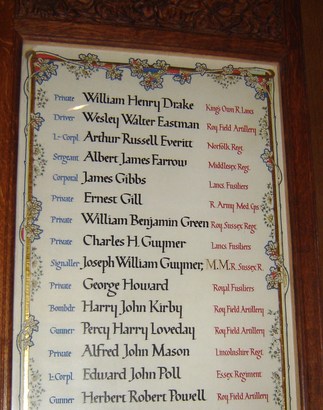 Private William Henry Drake King's Own R. Lancs
Driver Wesley Walter Eastman Roy. Field Artillery
L-Corpl. Arthur Russell Everitt Norfolk Regt.
Sergeant Albert James Farrow Middlesex Regt.
Corporal James Gibbs Lancs Fusiliers
Private Ernest Gill R. Army Med. Cps
Private William Benjamin Green Roy. Sussex Regt.
Private Charles H. Guymer Lancs Fusiliers
Signaller Joseph William Guymer, M.M. R. Sussex R.
Private George Howard Royal Fusiliers
Bombdr Harry John Kirby Roy. Field Artillery
Gunner Percy Harry Loveday Roy. Field Artillery
Private Alfred John Mason Lincolnshire Regt.
L-Corpl. Edward John Poll Essex Regiment
Gunner Herbert Robert Powell Roy. Field Artillery